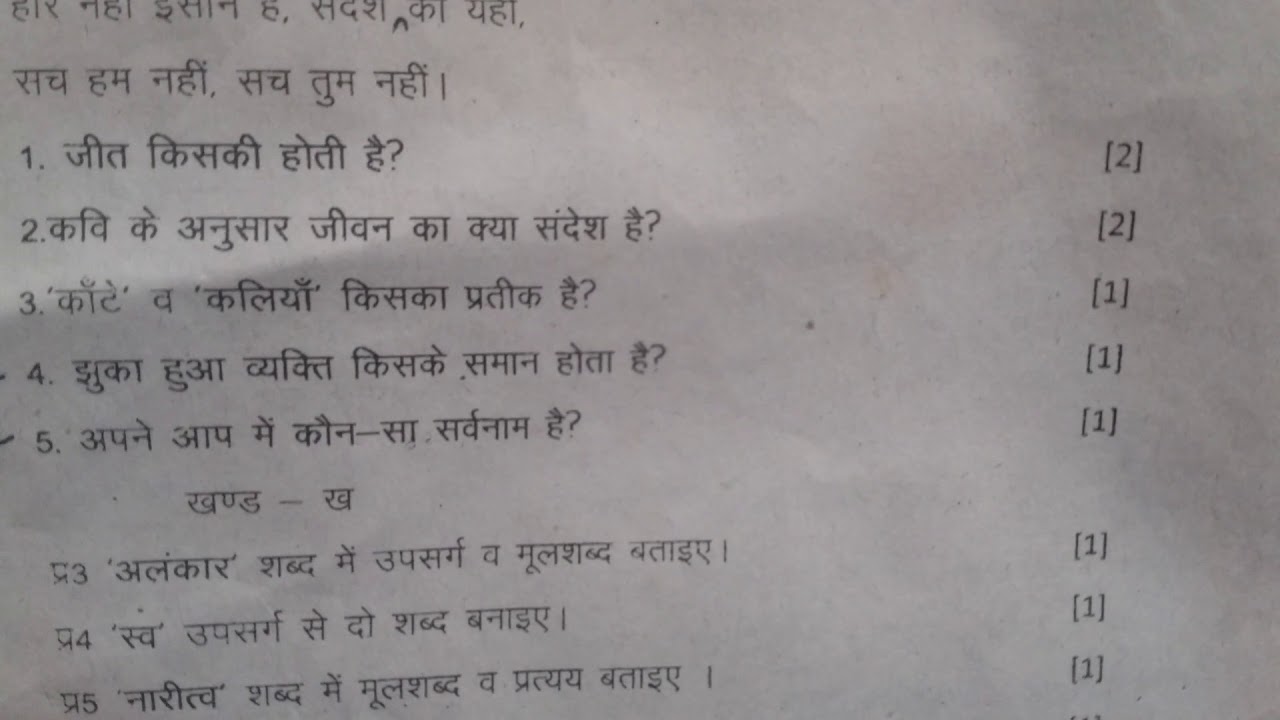 हार नहीं इंसान है, संदेश का यही,
सच हम नहीं, सच तुम नहीं।
1. जीत किसकी होती है? [2]
2.कवि के अनुसार जीवन का क्या संदेश है? [2]
3.'काँटे' व 'कलियाँ' किसका प्रतीक है? [1]
4. झुका हुआ व्यक्ति किसके समान होता है? [1]
5. अपने आप में कौन–सा सर्वनाम है? [1]
खण्ड – ख
प्र3 'अलंकार' शब्द में उपसर्ग व मूलशब्द बताइए। [1]
प्र4 'स्वं' उपसर्ग से दो शब्द बनाइए। [1]
प्र5 'नारीत्व' शब्द में मूलशब्द व प्रत्यय बताइए । [1]